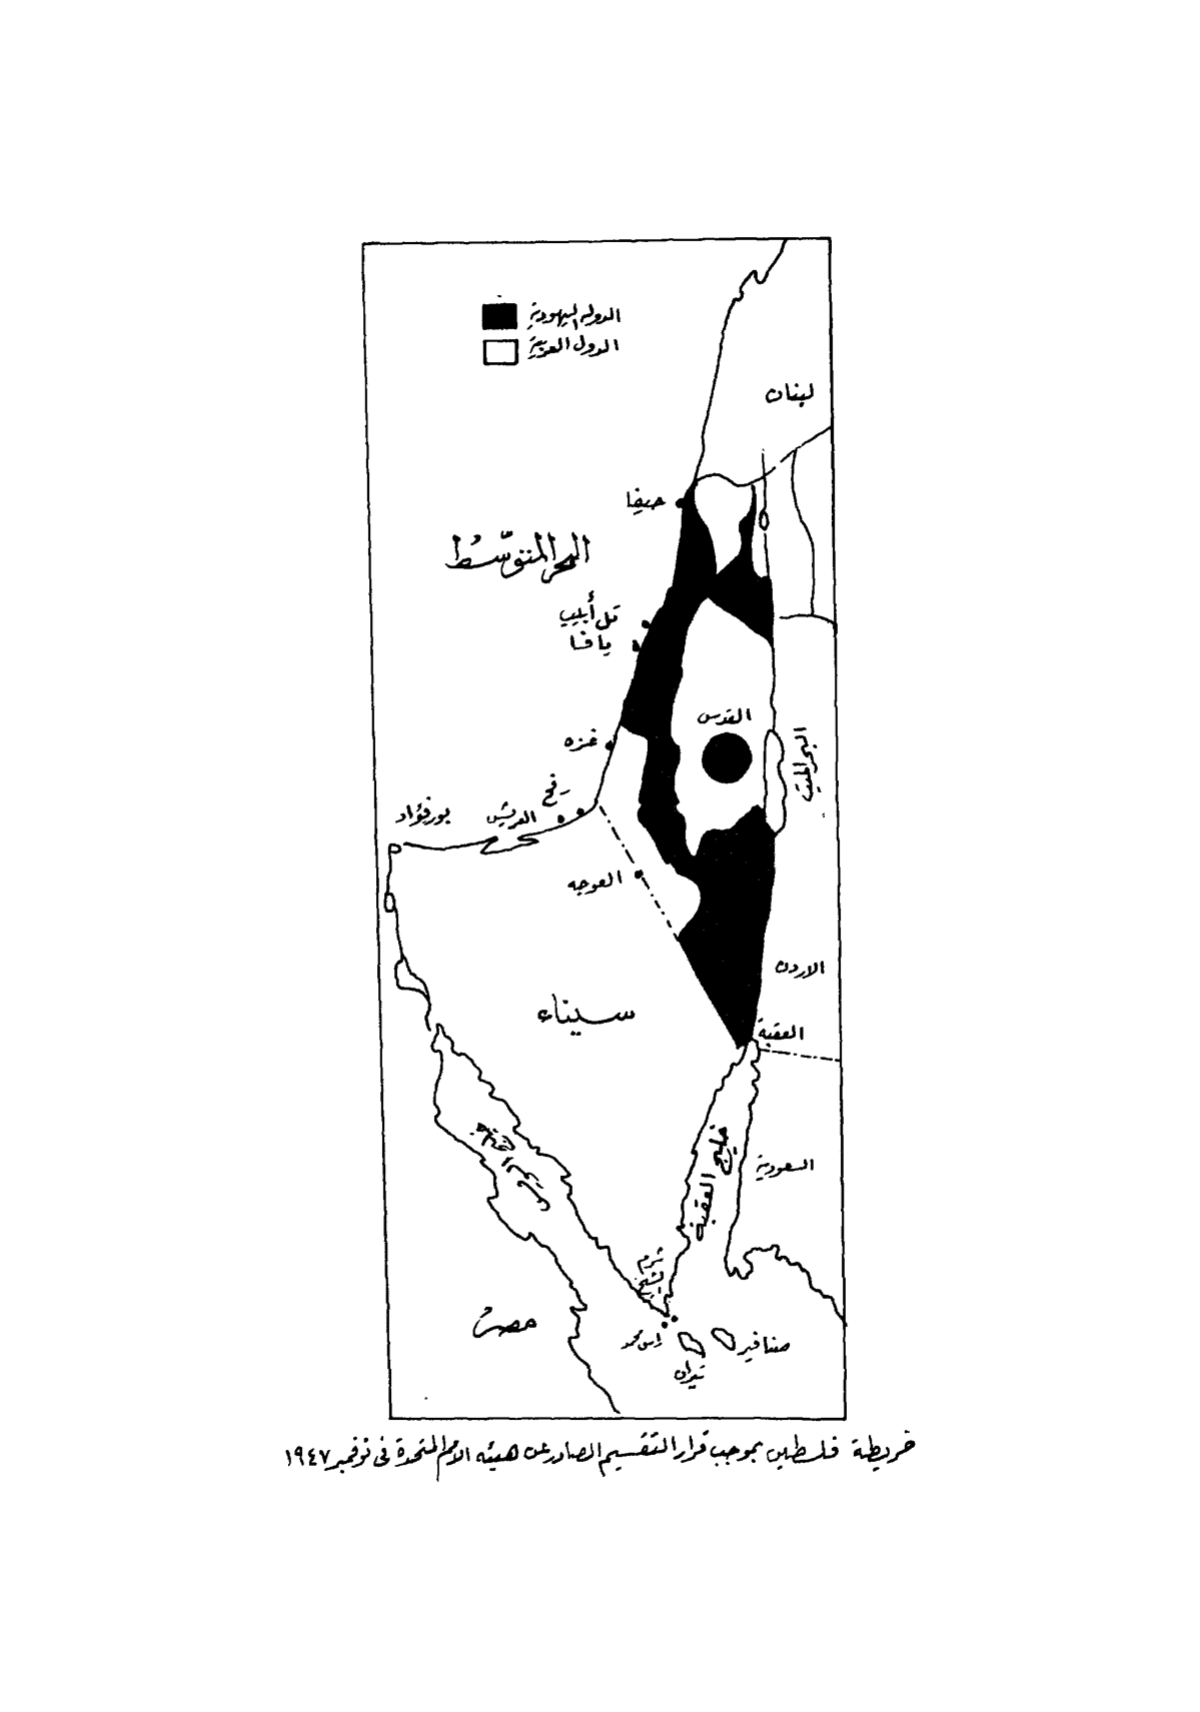 الدوله اليهودية
الدول العربية
لبنان
حيفا
البحر المتوسّط
تل أبيب
يافا
القدس
غزه
البحر الميت
رفح
العريش
بورفؤاد
العوجه
الاردن
سيناء
العقبة
خليج العقبة
السعودية
شرم
الشيخ
مصر
راس محمد
تيران
صنافير
خريطة فلسطين بموجب قرار التقسيم الصادر عن هيئه الامم المتحدة فى نوفمبر ١٩٤٧